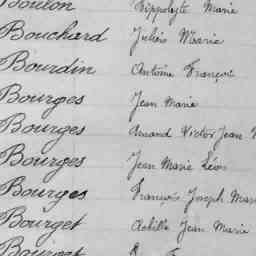 Boulon Hippolyte Marie
Bouchard Julien Marie
Bourdin Antoine François
Bourges Jean Marie
Bourges Amand Victor Jean
Bourges Jean Marie Léon
Bourges François Joseph Mari
Bourget Achille Jean Marie
Bourget